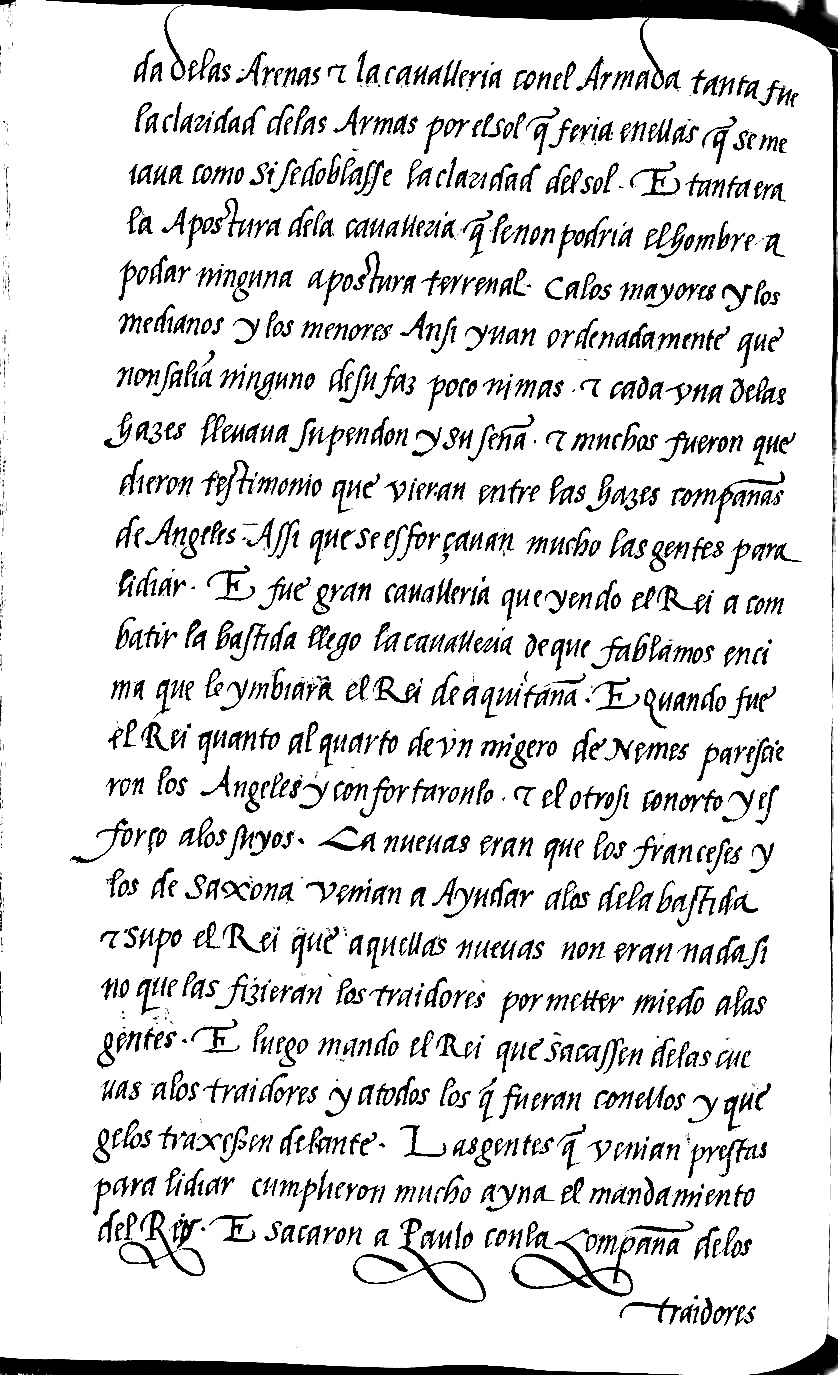 da delas Arenas ⁊ la cavalleria conel Armada tanta fue
la claridad delas Armas por el sol q̃ feria enellas q̃ seme
iaua como si se doblasse la claridad del sol. E tanta era
la Apostura dela cavalleria q̃ le non podria el hombre a
podar ninguna apostura terrenal. Calos mayores y los
medianos y los menores Ansi yuan ordenadamente que
non salia ninguno de su faz poco ni mas. ⁊ cada vna delas
hazes llevava su pendon y su seña. ⁊ muchos fueron que
dieron testimonio que vieran entre las hazes compañas
de Angeles. Assi que se esforçavan mucho las gentes para
lidiar. E fue gran cavalleria que yendo el Rei a com
batir la bastida llego la cavalleria de que fablamos enci
ma que le ymbiara el Rei de aquitaña. E Quando fue
el Rei quanto al quarto de vn migero de Nemes parescie
ron los Angeles y confortaronlo. ⁊ el otrosi conorto y es
forço alos suyos. La nuevas eran que los franceses y
los de Saxona venian a Ayudar alos dela bastida
⁊ supo el Rei que aquellas nuevas non eran nada si
no que las fizieran los traidores por metter miedo alas
gentes. E luego mando el Rei que sacassen delas cue
uas alos traidores y atodos los q̃ fueran conellos y que
gelos traxessen delante. Las gentes q̃ venian prestas
para lidiar cumplieron mucho ayna el mandamiento
del Rey. E sacaron a Paulo conla Compaña delos
traidores